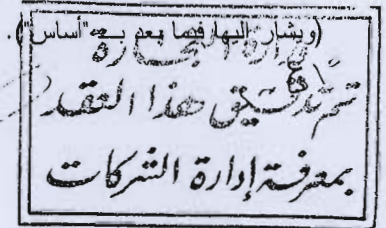 (ويشار إليها فيما بعد بـ "أساس").
وزارة التجارة
تم تدقيق هذا العقد
بمعرفة إدارة الشركات